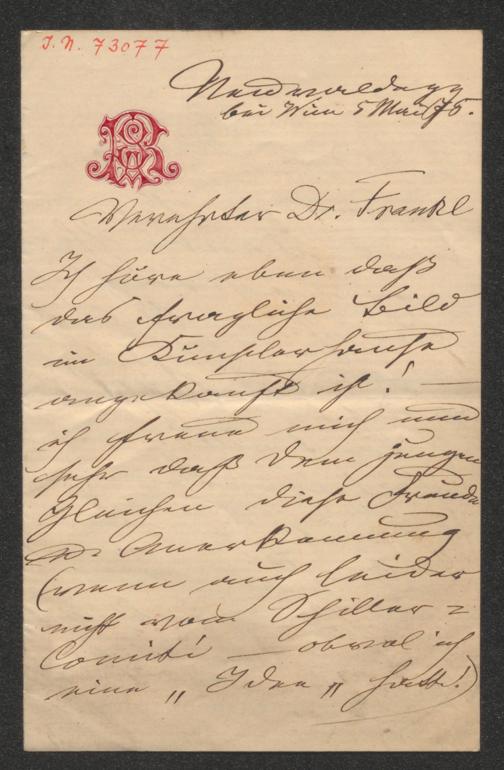 I. N. 73077
Neuwaldegg
bei Wien 5 Mai 76.
Verehrter Dr. Frankl
Ich höre eben daß
das fragliche Bild
im Künstlerhause
angekauft ist! —
ich freue mich nun
sehr daß dem jungen
diese Freude
Anerkennung
(wenn auch leider
nicht vom Schiller=
Comité — obwol ich
eine „Idee„ hatte!)